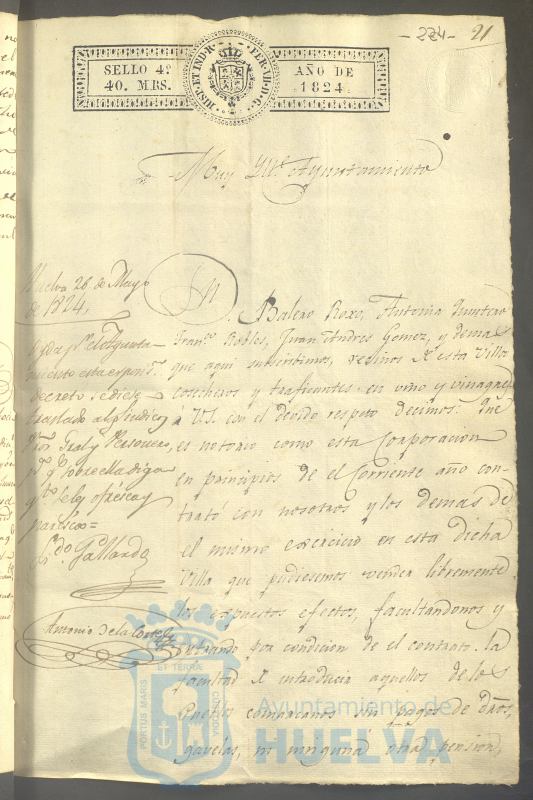 - 224 - 21
SELLO 4º
40. MRS.
HISP. ET IND. R. FER. VII. D. G.
AÑO DE
1824.
Muy Yll.e Ayuntamiento
Huelva 26 de Mayo
de 1824,
Ayunta-
miento esta
decreto
traslado al Sindico
Pror Gral y Personero,
pa qe sobre ella diga
qto se le ofrésca y
paresca =
Ldo. Gallardo
Antonio de la Corte
Balero Roxo, Antonia Quintero
Franco Robles, Juan Andres Gomez, y demas
que aqui suscrivimos, vesinos de esta Villa
cosecheros y traficantes en vino y vinagre,
á VS. con el devido respeto decimos: Que
es notorio como esta Corporacion
en principios de el corriente año con-
trató con nosotros y los demas de
el mismo exercicio en esta dicha
Villa que pudiesemos vender libremente
los expuestos efectos, facultandonos y
entrando por condicion de el contrato la
facultad de introducir aquellos de los
Pueblos comarcanos sin pagos de dros,
gavelas, ni ninguna otra pension,
PORTUS MARIS ET TERRAE CUSTODIA
Ayuntamiento de
HUELVA